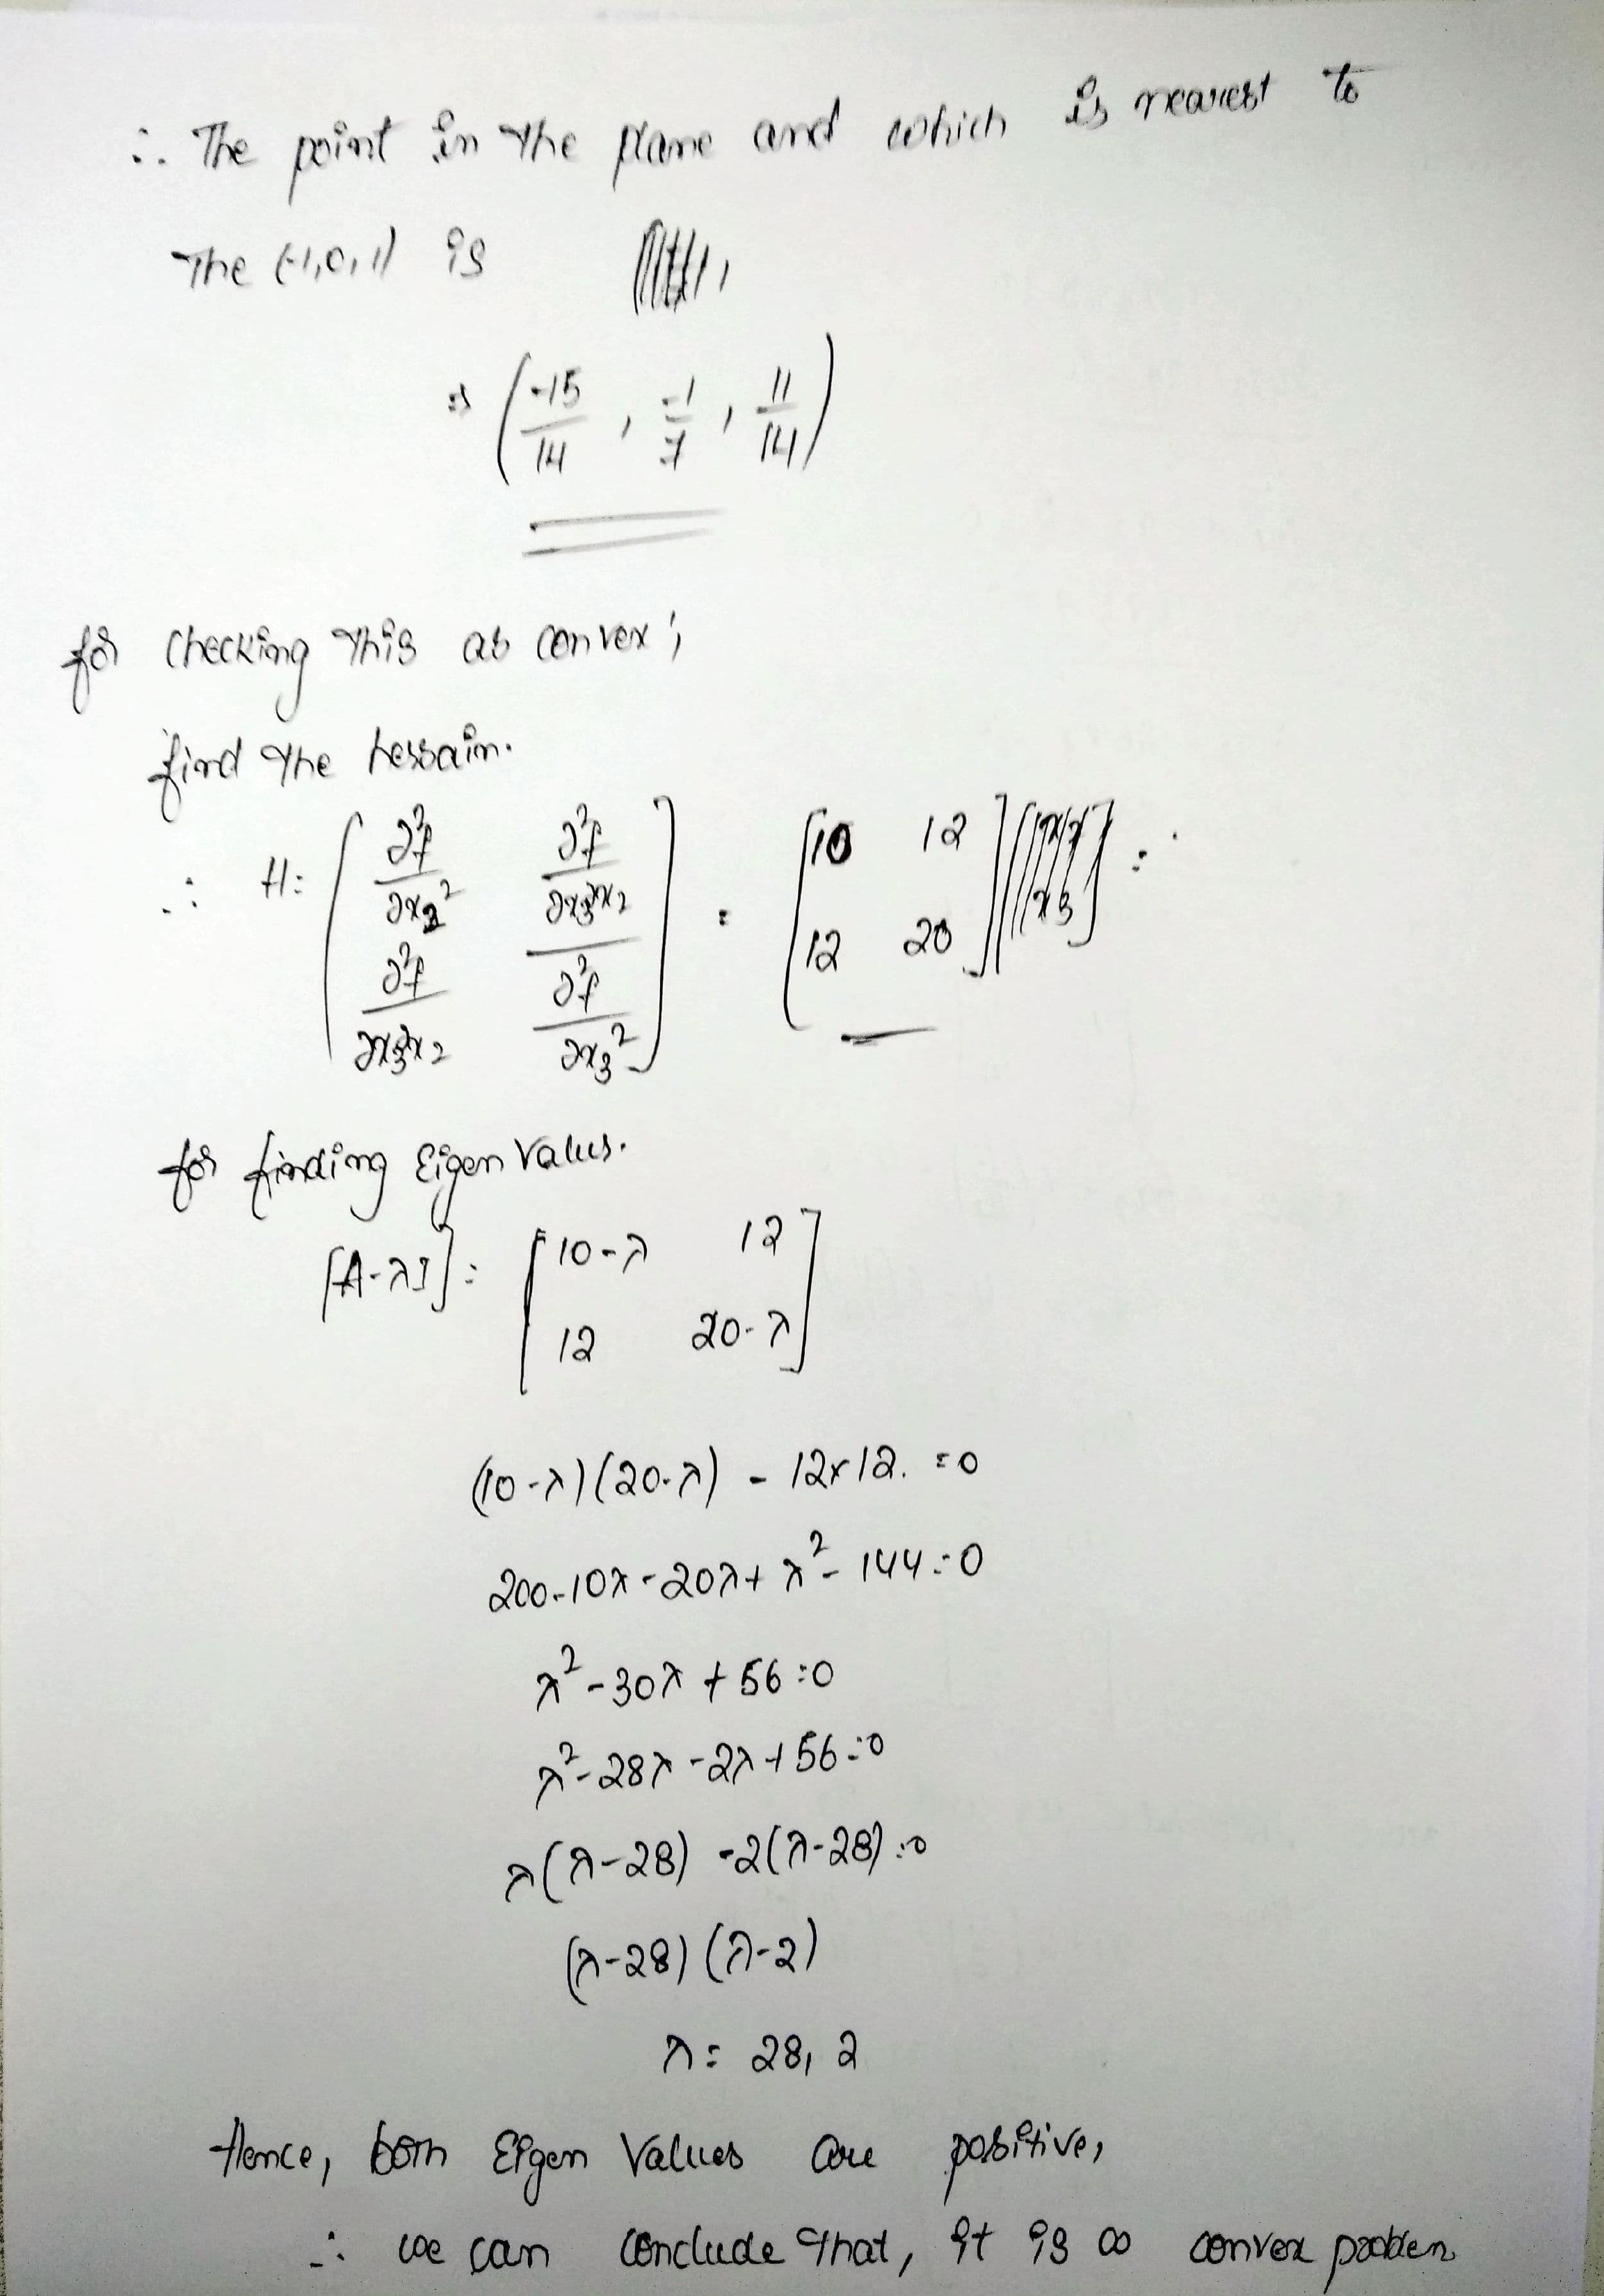 ∴ The point in the plane and which is nearest to
The (-1,0,1) is
⇒ (-15/14, -1/7, 11/14)
for checking this as convex;
find the hessain.
∴ H = [∂²f/∂x₂² ∂²f/∂x₃∂x₂ ; ∂²f/∂x₃∂x₂ ∂²f/∂x₃²] = [10 12 ; 12 20] =
for finding Eigen Values.
[A-λI] = [10-λ 12 ; 12 20-λ]
(10-λ)(20-λ) - 12×12. = 0
200-10λ-20λ+λ²-144=0
λ²-30λ+56=0
λ²-28λ-2λ+56=0
λ(λ-28) -2(λ-28)=0
(λ-28)(λ-2)
λ= 28, 2
Hence, both Eigen Values are positive,
∴ we can conclude that, it is a convex problem